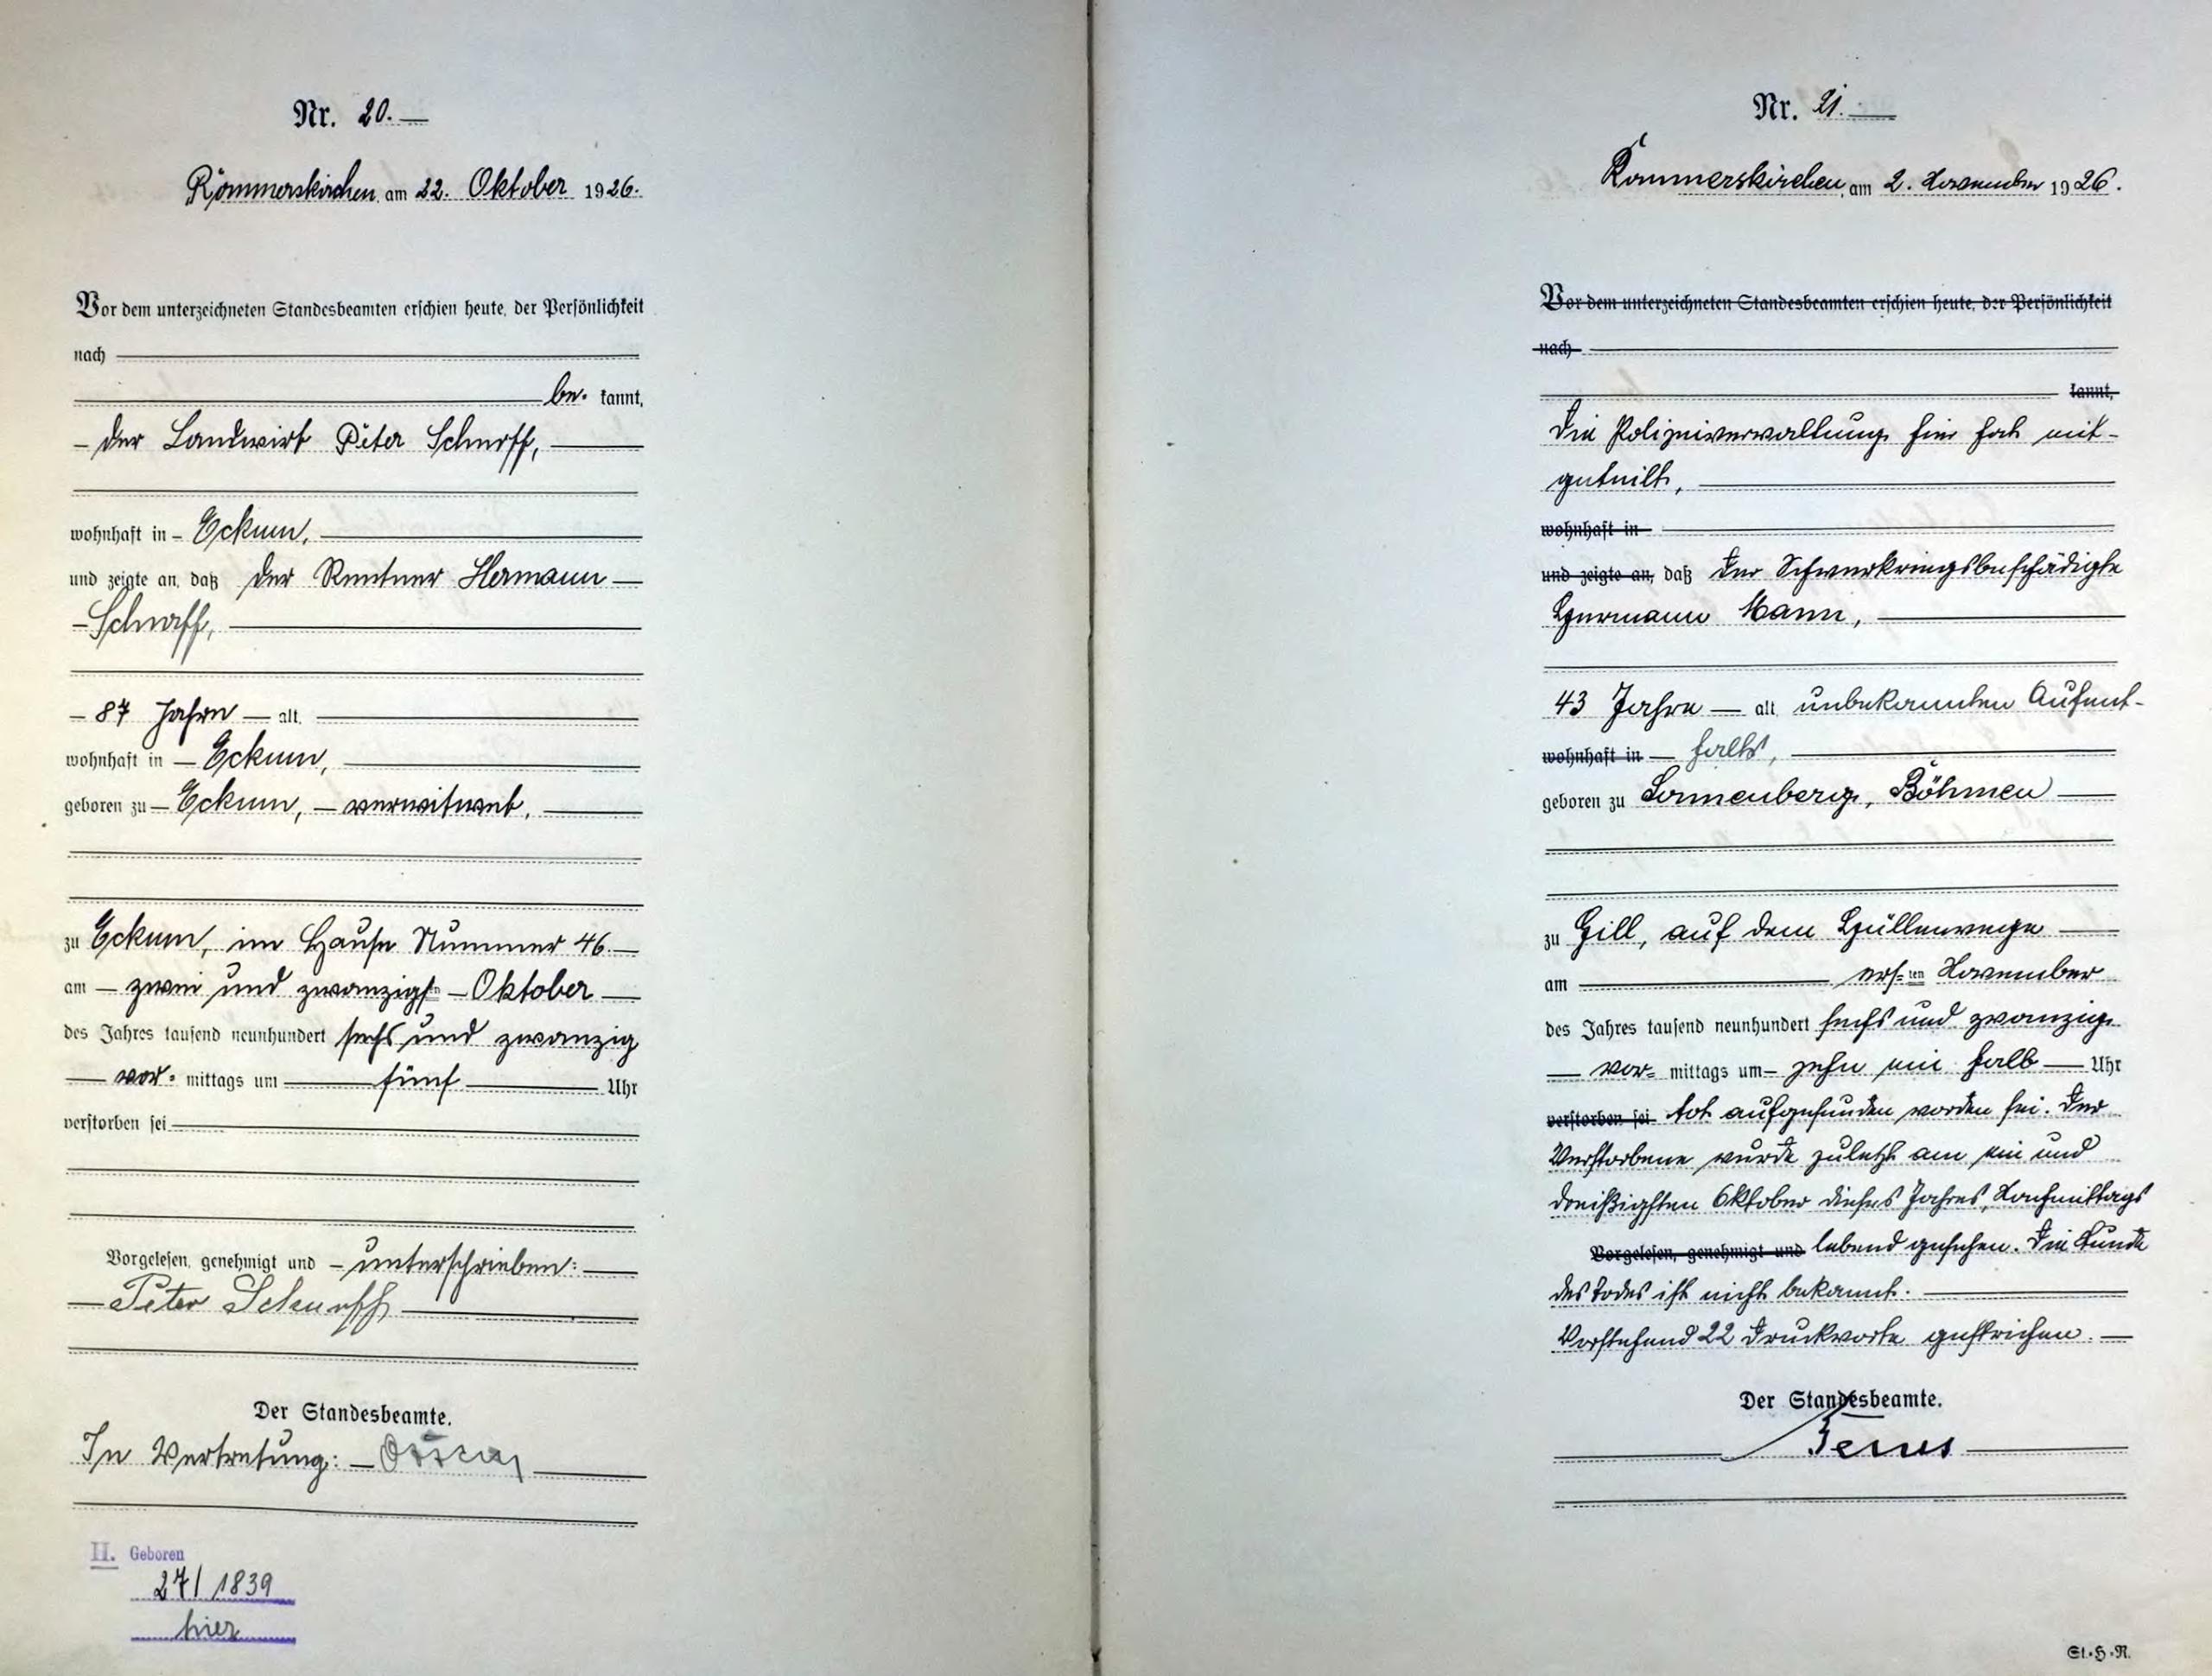 Nr. 20.
Rommerskirchen, am 22. Oktober 1926.
Vor dem unterzeichneten Standesbeamten erschien heute, der Persönlichkeit
nach
be- kannt,
der Landwirt Peter Schnorff,
wohnhaft in Eckum,
und zeigte an, daß der Rentner Hermann
Schnorff,
87 Jahre alt,
wohnhaft in Eckum,
geboren zu Eckum, verwitwet,
zu Eckum, im Hause Nummer 46
am zwei und zwanzigsten Oktober
des Jahres tausend neunhundert sechs und zwanzig
vor- mittags um fünf Uhr
verstorben sei
Vorgelesen, genehmigt und unterschrieben:
Peter Schnorff
Der Standesbeamte.
In Vertretung:
II. Geboren
27/1839
hier
Nr. 21.
Rommerskirchen, am 2. November 1926.
Vor dem unterzeichneten Standesbeamten erschien heute, der Persönlichkeit
nach
kannt,
Die Polizeiverwaltung hier hat mit-
geteilt,
wohnhaft in
und zeigte an, daß der Schwerkriegsbeschädigte
Hermann Mann,
43 Jahre alt, unbekannten Aufent-
wohnhaft in halts,
geboren zu Sonnenberg, Böhmen
zu Gill, auf dem Hüllenwege
am ersten November
des Jahres tausend neunhundert sechs und zwanzig
vor- mittags um zehn ein halb Uhr
verstorben sei tot aufgefunden worden sei. Der
Verstorbene wurde zuletzt am ein und
dreißigsten Oktober dieses Jahres, Nachmittags
Vorgelesen, genehmigt und lebend gesehen. Die Stunde
des Todes ist nicht bekannt.
Vorstehend 22 Druckworte gestrichen.
Der Standesbeamte.
St.-H.-R.